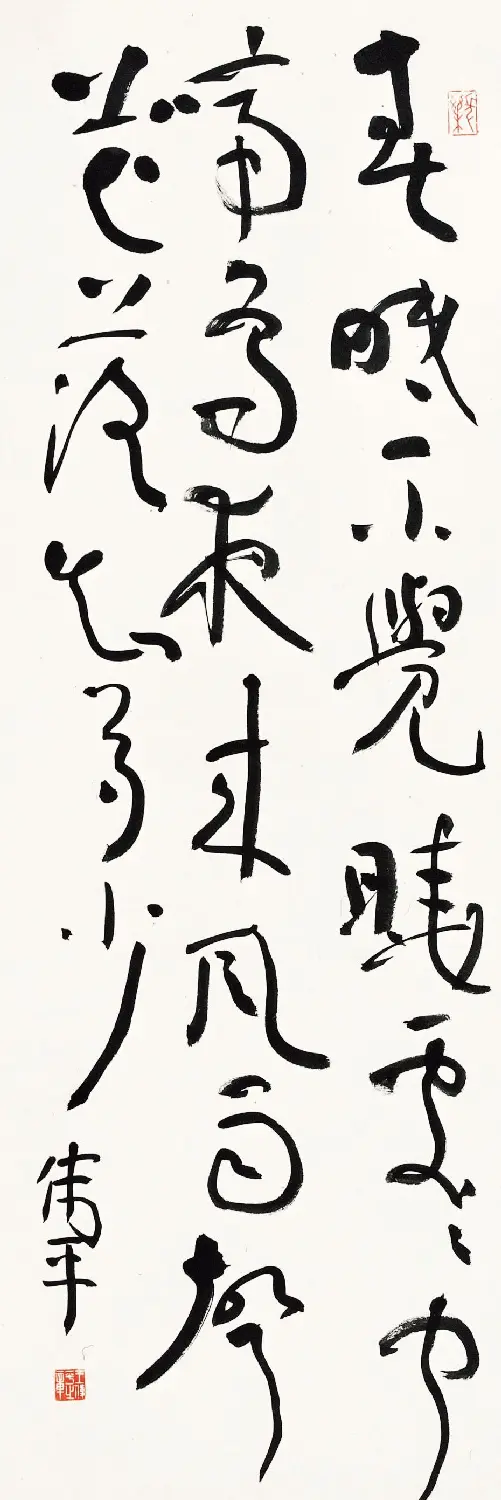 春眠不覺曉處々聞
啼鳥夜來風雨聲
花落知多少
偉平